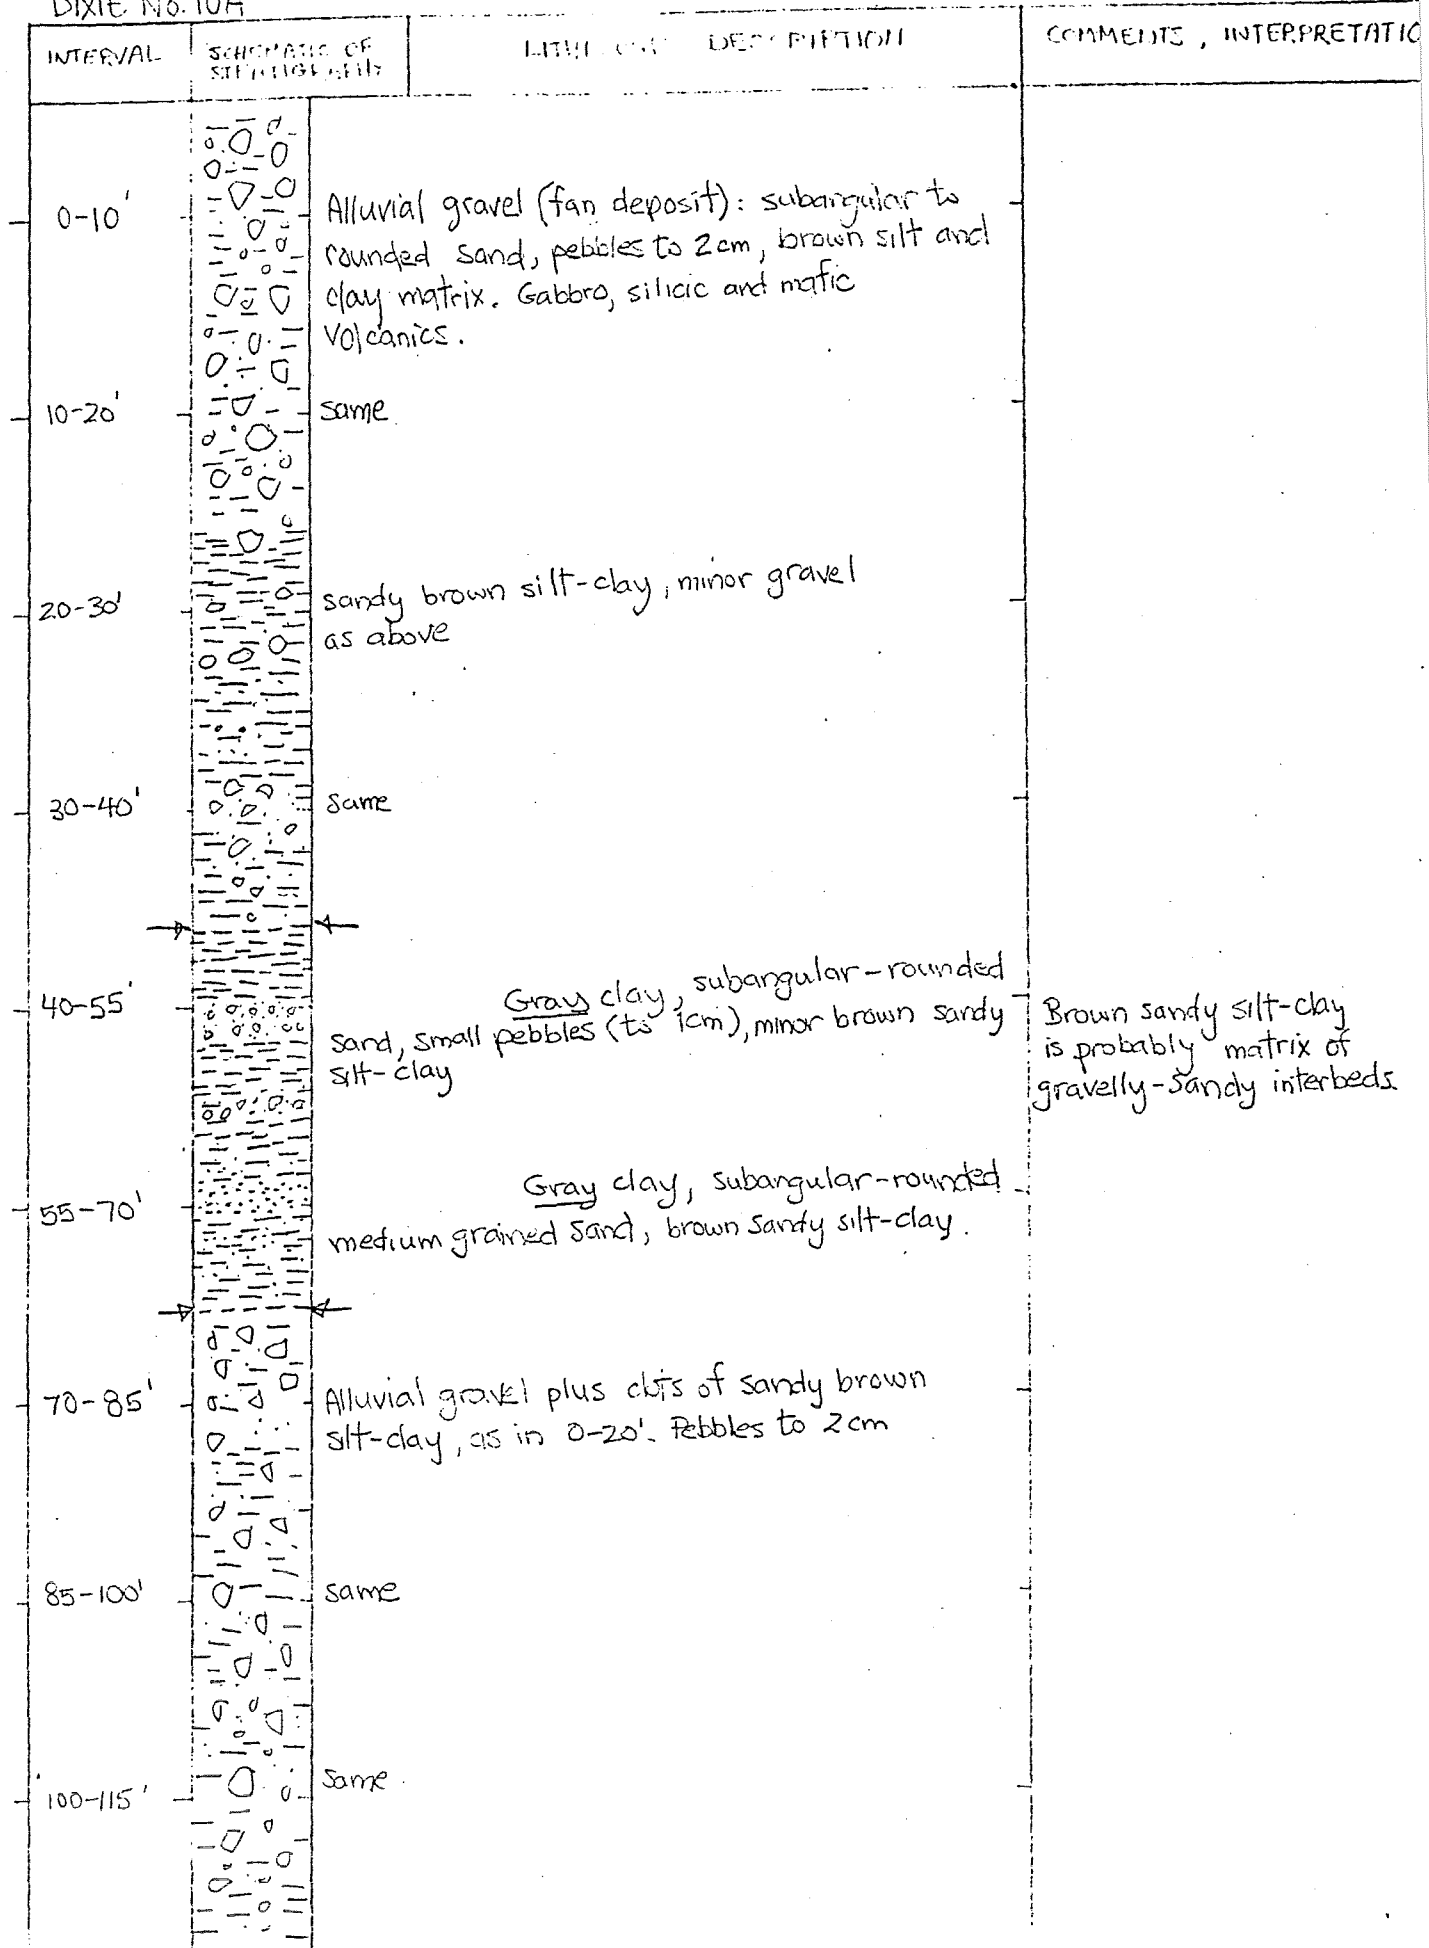 DIXIE No. 10A
INTERVAL
SCHEMATIC OF
STRATIGRAPHY
DESCRIPTION
COMMENTS, INTERPRETATIO
0-10'
Alluvial gravel (fan deposit): subangular to
rounded sand, pebbles to 2cm, brown silt and
clay matrix. Gabbro, silicic and mafic
volcanics.
10-20'
same
20-30'
sandy brown silt-clay, minor gravel
as above
30-40'
same
40-55'
Gray clay, subangular-rounded
sand, small pebbles (to 1cm), minor brown sandy
silt-clay
Brown sandy silt-clay
is probably matrix of
gravelly-sandy interbeds.
55-70'
Gray clay, subangular-rounded
medium grained sand, brown sandy silt-clay.
70-85'
Alluvial gravel plus clots of sandy brown
silt-clay, as in 0-20'. Pebbles to 2cm
85-100'
same
100-115'
same